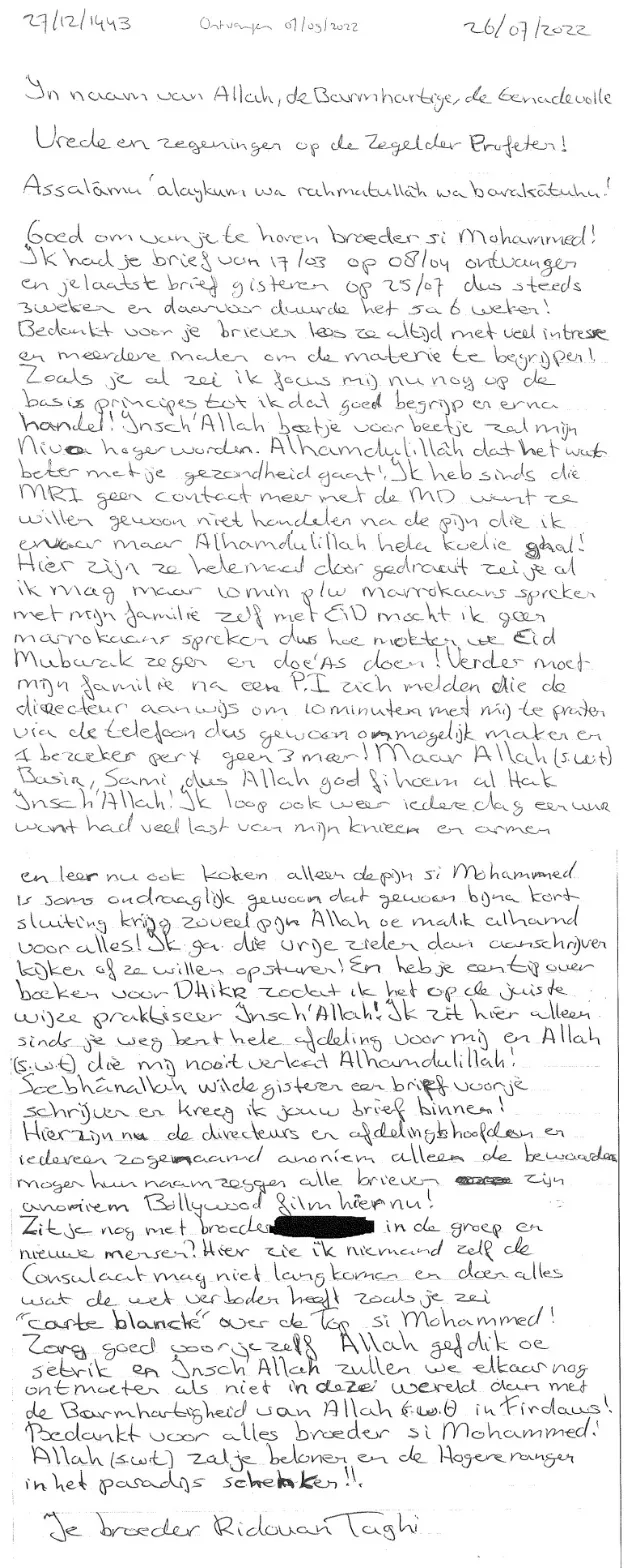 27/12/1443 Ontvangen 01/09/2022 26/07/2022
In naam van Allah, de Barmhartige, de Genadevolle
Vrede en zegeningen op de Zegel der Profeten!
Assalāmu 'alaykum wa rahmatullāh wa barakātuhu!
Goed om van je te horen broeder si Mohammed!
Ik had je brief van 17/03 op 08/04 ontvangen
en je laatste brief gisteren op 25/07 dus steeds
3 weken en daarvoor duurde het 5 a 6 weken!
Bedankt voor je brieven lees ze altijd met veel intresse
en meerdere malen om de materie te begrijpen!
Zoals je al zei ik focus mij nu nog op de
basis principes tot ik dat goed begrijp en erna
handel! Insch'Allah beetje voor beetje zal mijn
Nivo hoger worden. Alhamdulillāh dat het wat
beter met je gezondheid gaat! Ik heb sinds die
MRI geen contact meer met de MD want ze
willen gewoon niet handelen na de pijn die ik
ervaar maar Alhamdulillah hela koelie ghal!
Hier zijn ze helemaal door gedraait zei je al
ik mag maar 10 min p/w marrokaans spreken
met mijn familie zelf met EiD mocht ik geen
marrokaans spreken dus hoe mokten we Eid
Mubarak zegen en doe'As doen! Verder moet
mijn familie na een P.I zich melden die de
directeur aanwijs om 10 minuten met mij te praten
via de telefoon dus gewoon onmogelijk maken en
1 bezoeker per x geen 3 meer! Maar Allah (s.w.t)
Basir, Sami, dus Allah god fihoem al Hak
Insch'Allah! Ik loop ook weer iedere dag een uur
want had veel last van mijn knieën en armen
en leer nu ook koken alleen de pijn si Mohammed
is soms ondraaglijk gewoon dat gewoon bijna kort
sluiting krijg zoveel pijn Allah oe malik alhamd
voor alles! Ik ga die vrije zielen dan aanschrijven
kijken of ze willen opsturen! En heb je een tip over
boeken voor DHIKR zodat ik het op de juiste
wijze praktiseer Insch'Allah! Ik zit hier alleen
sinds je weg bent hele afdeling voor mij en Allah
(s.w.t) die mij nooit verlaat Alhamdulillah!
Soebhānallah wilde gisteren een brief voor je
schrijven en kreeg ik jouw brief binnen!
Hier zijn nu de directeurs en afdelingshoofden en
iedereen zogenaamd anoniem alleen de bewaarders
mogen hun naam zeggen alle brieven zijn
anoniem Bollywood film hier nu!
Zit je nog met broeder in de groep en
nieuwe mensen? Hier zie ik niemand zelf de
Consulaat mag niet langkomen en doen alles
wat de wet verboden heeft zoals je zei
"carte blanche" over de Top si Mohammed!
Zorg goed voor je zelf Allah gefdik oe
setrik en Insch'Allah zullen we elkaar nog
ontmoeten als niet in deze wereld dan met
de Barmhartigheid van Allah (s.w.t) in Firdaus!
Bedankt voor alles broeder si Mohammed!
Allah (s.w.t) zal je belonen en de Hogere rangen
in het paradijs schenken!!
Je broeder Ridouan Taghi